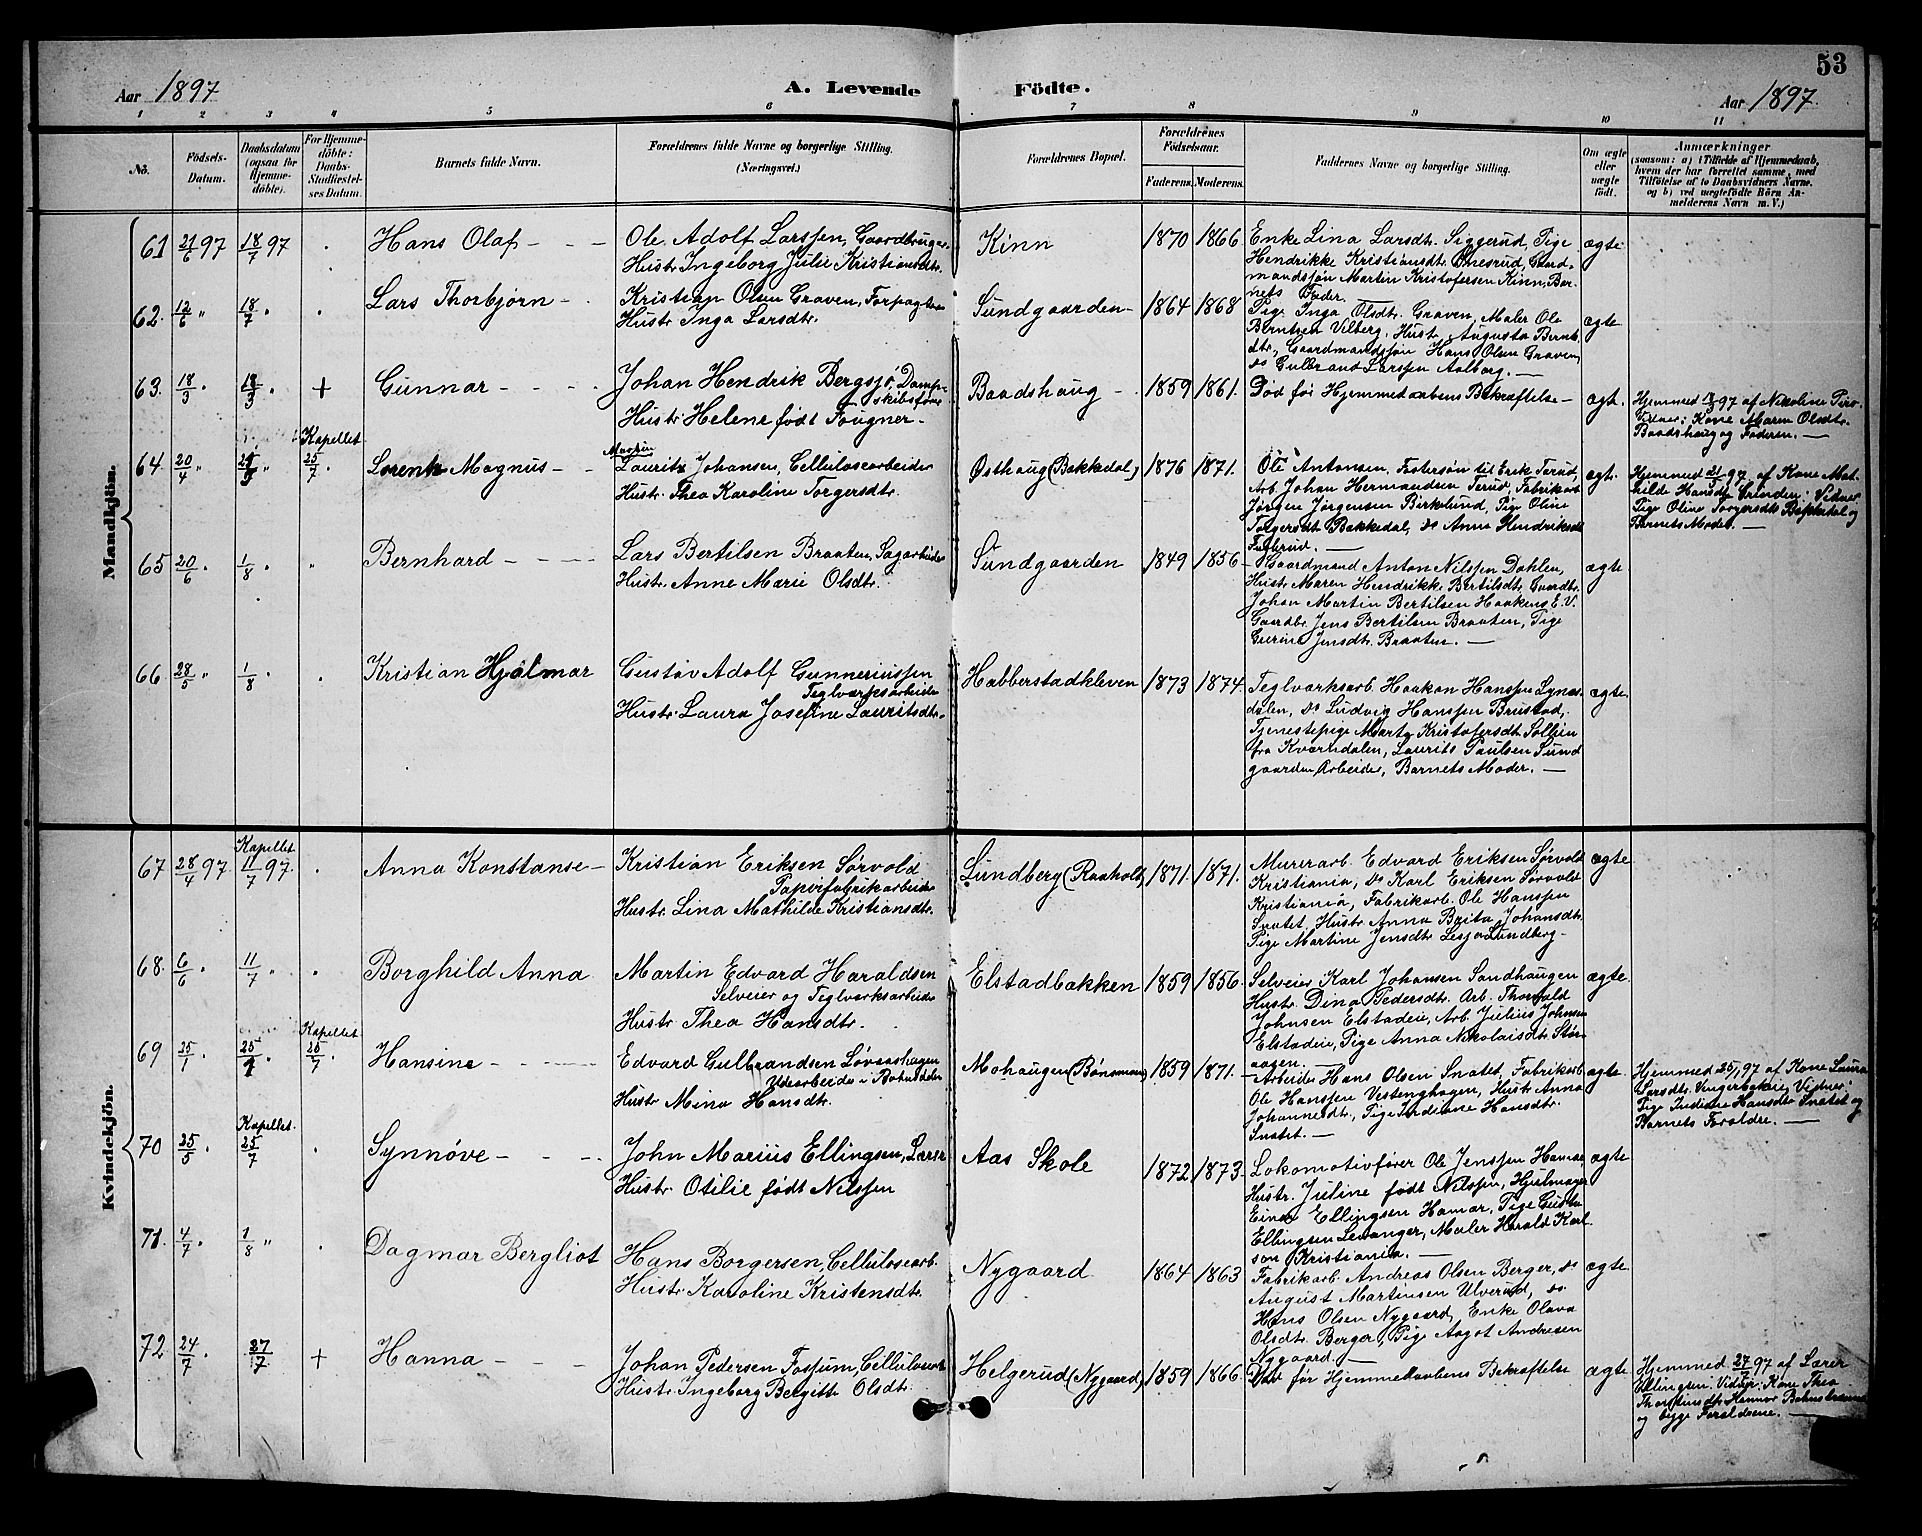 53
Aar 1897
A. Levende Födte.
Aar 1897.
1 2 3 4 5 6 7 8 9 10 11
No.
Födsels-Datum.
Daabsdatum (ogsaa for Hjemmedöbte).
For Hjemmedöbte: Daabs-Stadfæstelses Datum.
Barnets fulde Navn.
Forældrenes fulde Navne og borgerlige Stilling.
(Næringsvei.)
Forældrenes Bopæl.
Forældrenes Födselsaar.
Faderens. Moderens.
Faddernes Navne og borgerlige Stilling.
Om ægte eller uægte födt.
Anmærkninger
(saasom: a) i Tilfælde af Hjemmedaab,
hvem der har forrettet samme, med
Tilföielse af to Daabsvidners Navne.
og b) ved uægtefödte Börn An-
melderens Navn m. V.)
Mandkjön.
61 21/6 97 18/7 97 . Hans Olaf - - -
Ole Adolf Larssen, Gaardbruger
Hustr. Ingeborg Julie Kristiansdtr.
Kinn 1870 1866
Enke Lina Larsdtr. Siggerud, Pige
Hendrikke Kristiansdtr. Onesrud, Gaard-
mandssøn Martin Kristofersen Kinn, Bar-
nets Fader.
ægte
62. 12/6 " 18/7 " . Lars Thorbjørn -
Kristian Olsen Graven, Forpagter
Hustr. Inga Larsdtr.
Sundgaarden - 1864 1868
Pige Inga Olsdtr. Graven, Maler Ole
Berntsen Vilberg, Hustr. Augusta Bernt-
dtr., Gaardmandssøn Hans Olsen Graven,
do Gulbrand Larssen Aalborg. —
ægte
63. 18/3 " 18/3 " + Gunnar - - - -
Johan Hendrik Bergsjø, Damp-
skibsfører
Hustr. Helene født Fougner -
Baadshaug - 1859 1861.
Død før Hjemmedaabens Bekræftelse -
ægt.
Hjemmed. 18/3 97 af Nikoline Piro
Vidner: Kone Maren Olsdtr.
Baadshaug og Faderen. —
Kapellet
64. 20/4 " 25/7 Lorentz Magnus - -
Lauritz Johansen, Cellulosearbeider
Hustr. Thea Karoline Torgersdtr.
Østhaug (Bakkedal) 1876 1871.
Ole Antonsen, Fostersøn til Erik Terud,
Arb. Johan Hermandsen Terud, Fabrikarb.
Jørgen Jørgensen Birkelund, Pige Oline
Torgersdtr. Bakkedal, do Anna Hendriksd.
ægt.
Hjemmed. 97 af Kone Mat-
hilde Hansdtr. Grinden: Vidner
Pige Oline Torgersdtr. Bakkedal og
Barnets Moder. —
65 20/6 . 1/8 . " Bernhard - - - -
Lars Bertilsen Braaten, Sagarbeider
Hustr. Anne Marie Olsdtr.
Sundgaarden 1849 1856
Gaardmand Anton Nilssen Dahlen,
Hustr. Maren Hendrikke Bertilsdtr. Gaardbr.
Johan Martin Bertilsen Haakens E.V.
Gaardbr. Jens Bertilsen Braaten, Pige
Gurine Jensdtr. Braaten. —
ægte.
66. 28/5 " 1/8 . . Kristian Hjalmar
Gustav Adolf Gunneriussen
Teglværksarbeider
Hustr. Laura Josefine Lauritsdtr.
Habberstadkleven 1873 1874.
Teglværksarb. Haakon Hanssen Lynas-
dalen, do Ludvig Hanssen Brustad,
Tjenestepige Marte Kristofersdt. Sollien
fra Kværndalen, Laurits Paulsen Sund
gaarden Arbeider, Barnets Moder. —
ægte.
Kvindekjön.
Kapellet
67 28/4 97 11/7 97 . Anna Konstanse -
Kristian Eriksen Sørvold
Papirfabrikarbeider
Hustr. Lina Mathilde Kristiansdtr.
Lundberg (Raaholt) 1871. 1871.
Murerarb. Edvard Eriksen Sørvold
Kristiania, do Karl Eriksen Sørvold
Kristiania, Fabrikarb. Ole Hanssen
Snatet, Hustr. Anna Brita Johansdtr.
Pige Martine Jensdtr. Lesja Lundberg -
ægte
68. 6/6 . 11/7 . . Borghild Anna
Martin Edvard Haraldsen
Selveier og Teglværksarbeider
Hustr. Thea Hansdtr.
Elstadbakken 1859 1856.
Selveier Karl Johansen Sandhaugen
Hustr. Dina Pedersdtr. Arb. Thorvald
Johnsen Elstadeie, Arb. Julius Johnsen
Elstadeie, Pige Anna Nikolaisdtr. Stør-
aasen.
ægte.
Kapellet
69 25/7 . 25/7 Hansine - - - -
Edvard Gulbrandsen Løvaashagen
Udearbeider i Bøhnsdalen
Hustr. Mina Hansdtr.
Mohaugen (Bønsmoen) 1859 1871.
Arbeider Hans Olsen Snatet, Fabrikarb.
Ole Hanssen Vestenghagen, Hustr. Anna
Johannesdtr., Pige Indiane Hansdtr.
Snatet. —
ægte
Hjemmed. 25/1 97 af Kone Laura
Larsdtr. Vingerbakeie, Vidner:
Pige Indiane Hansdtr. Snatet og
Barnets Forældre. —
Kapellet.
70 25/5 . 25/7 . Synnøve - - -
John Marius Ellingsen, Lærer
Hustr. Otilie født Nilssen
Aas Skole 1872 1873.
Lokomotivfører Ole Jenssen Hamar,
Hustr. Juline født Nilssen, Hjulmager
Einar Ellingsen Hamar, Pige Gusta
Ellingsen Levanger, Maler Harald Karl-
son Kristiania. —
ægte
71. 4/7 . 1/8 " . Dagmar Bergliot
Hans Borgersen, Cellulosearb.
Hustr. Karoline Kristensdtr.
Nygaard 1864 1863
Fabrikarb. Andreas Olsen Berger, do
August Martinsen Ulverud, do
Hans Olsen Nygaard, Enke Olava
Olsdtr. Berger, Pige Aagot Andresen
Nygaard. —
ægte
72 24/7 . 27/7 + Hanna - - -
Johan Pedersen Fossum, Cellulosearb.
Hustr. Ingeborg Bergitte Olsdtr.
Helgerud (Nygaard) 1859 1866.
Død før Hjemmedaabens Bekræftelse
ægte
Hjemmed. 27/7 97 af Lærer
Ellingsen. Vidner: Kone Thea
og begge Forældrene. —